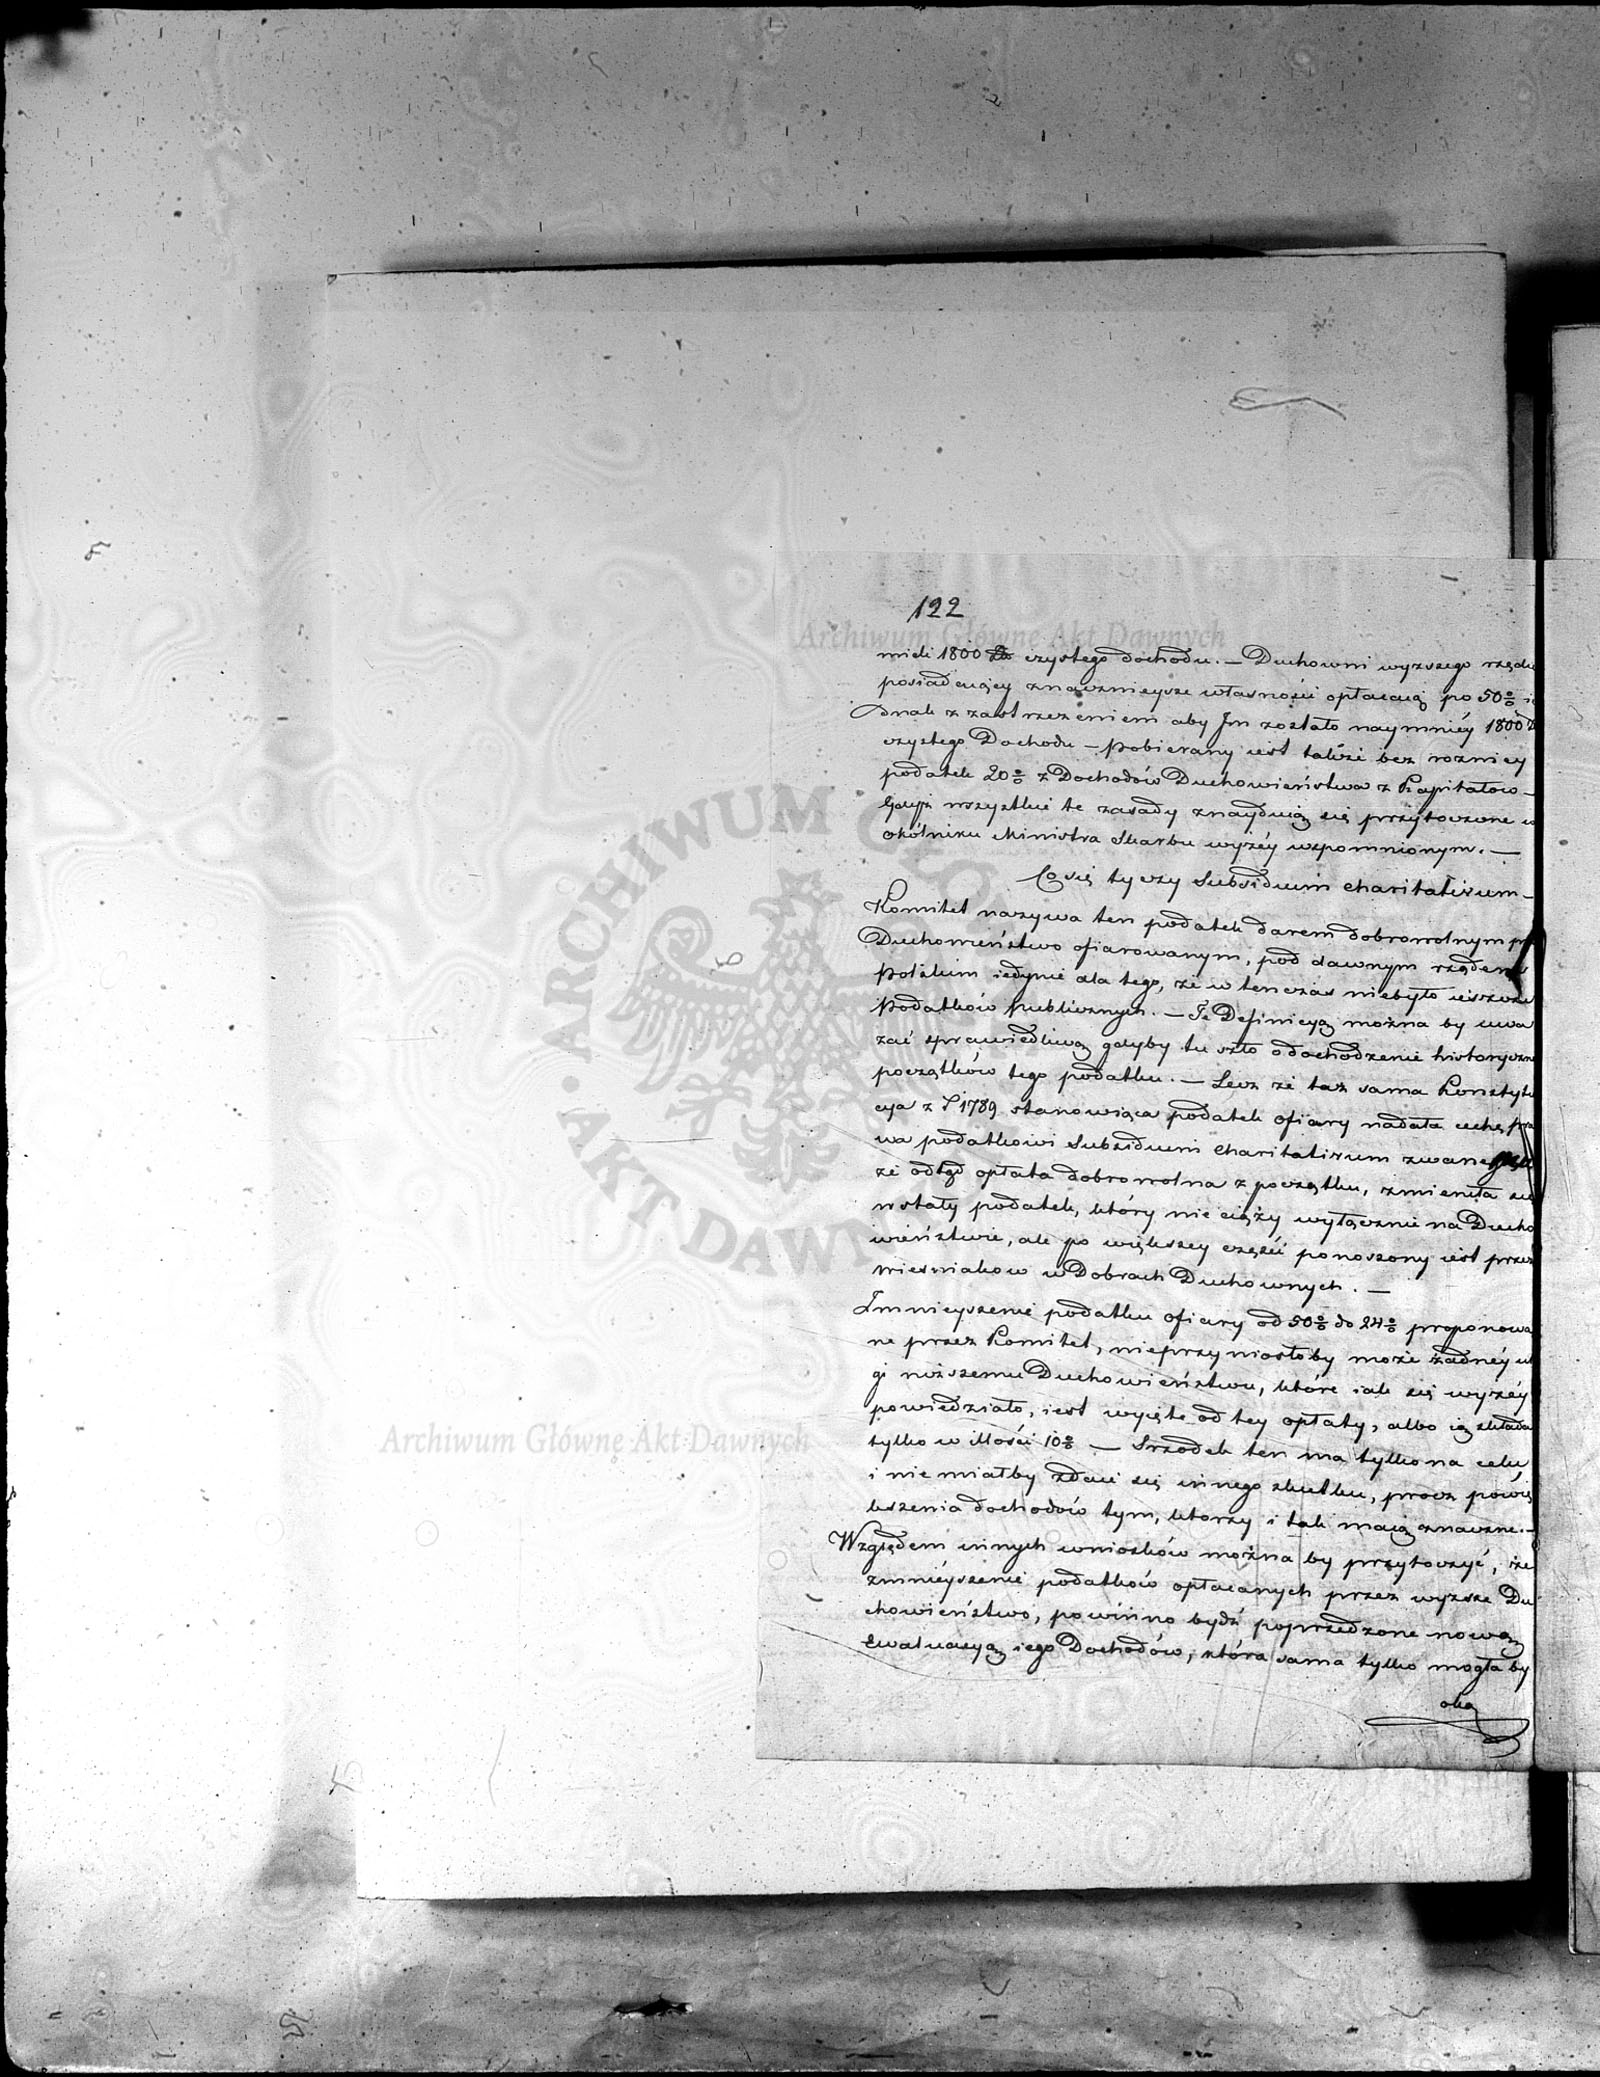 122
mieli 1800 Zł czystego dochodu. — Duchowni wyzszego rzędu
posiadaiący znacznieysze własności opłacaią po 50% ie
dnak z zastrzezeniem aby Jm zostało naymniéy 1800 Z
czystego Dochodu — Pobierany iest także bez roznicy
podatek 20% z Dochodów Duchowieństwa z Kapitałow —
Gdyż wszystkie te zasady znayduią się przytoczone w
okólniku Ministra Skarbu wyżéy wspomnionym. —
Co się tyczy Subsidium charitativum —
Komitet nazywa ten podatek darem dobrowolnym prz
Duchowieństwo ofiarowanym, pod dawnym rządem
Polskim iedynie dla tego, że w tenczas niebyło ieszcze
Podatków Publicznych. — Te Definicyą można by uwa
zać sprawiedliwą gdyby tu szło o dochodzenie historyczne
początków tego podatku. — Lecz że taż sama Konstytu
cya z r 1789 stanowiąca podatek ofiary nadała cechę pra
wa podatkowi Subsidium Charitativum zwane
że odtąd opłata dobrowolna z początku, zmieniła się
w stały podatek, który nie ciąży wyłącznie na Ducho
wieństwie, ale po większey części ponoszony iest przez
wiesniakow w Dobrach Duchownych. —
Zmnieyszenie podatku ofiary od 50% do 24% proponowa
ne przez Komitet, nieprzyniosłoby może żadnéy ul
gi niższemu Duchowieństwu, które iak się wyżéy
powiedziało, iest wyięte od tey opłaty, albo ią składa
tylko w ilłości 10% — Srzodek ten ma tylko na celu
i nie miałby zdaie się innego skutku, procz powię
kszenia dochodów tym, ktorzy i tak maią znaczne. —
Względem innych wniosków można by przytoczyć, że
zmniéyszenie podatków opłacanych przez wyzsze Du
chowieństwo, powinno bydź poprzedzone nową
Ewaluacyą iego Dochodów, która sama tylko mogła by
oka
Archiwum Główne Akt Dawnych
Archiwum Główne Akt Dawnych
ARCHIWUM GŁÓWNE AKT DAWNYCH